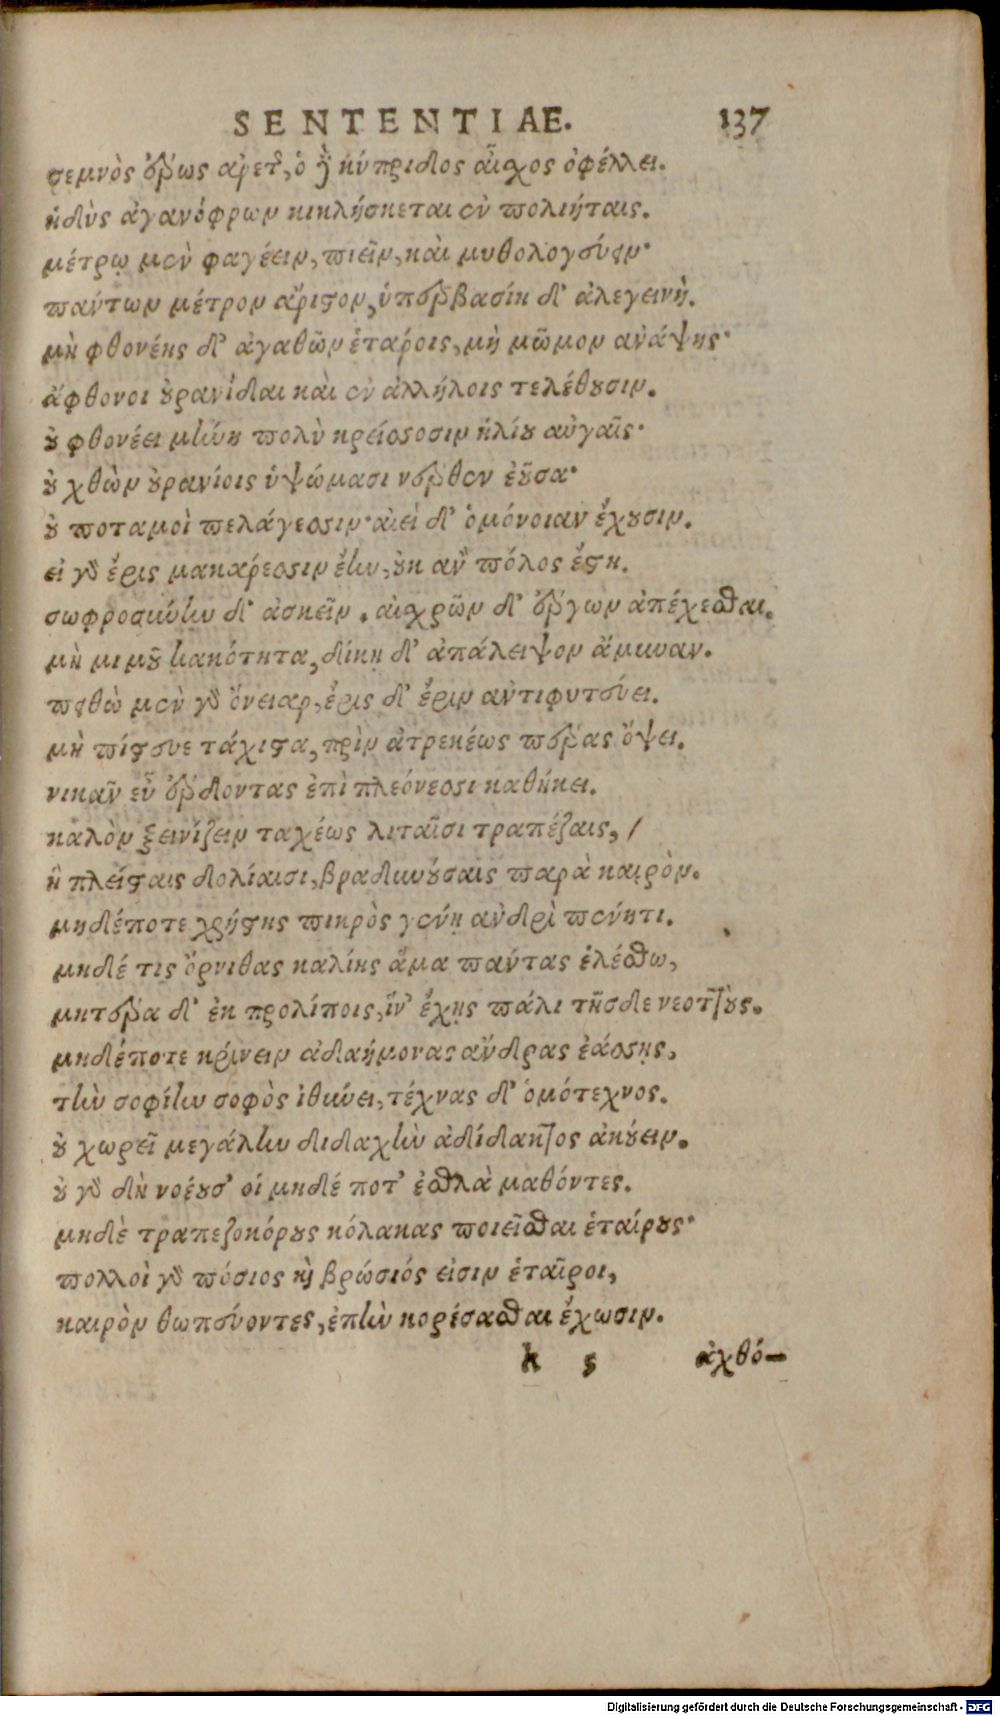 SENTENTIAE. 137
σεμνὸς ἔρως ἀρετῆς, ὁ δὲ κύπριδος αἶσχος ὀφέλλει.
ἡδὺς ἀγανόφρων κικλήσκεται ἐν πολιήταις.
μέτρῳ μὲν φαγέειν, πιεῖν, καὶ μυθολογεύειν·
πάντων μέτρον ἄριστον, ὑπερβασίη δ' ἀλεγεινή.
μὴ φθονέῃς δ' ἀγαθῶν ἑτάροις, μὴ μῶμον ἀνάψῃς·
ἄφθονοι οὐρανίδαι καὶ ἐν ἀλλήλοις τελέθουσιν.
οὐ φθονέει μήνη πολὺ κρείσσοσιν ἡλίου αὐγαῖς·
οὐ χθὼν οὐρανίοις ὑψώμασι νέρθεν ἐοῦσα·
οὐ ποταμοὶ πελάγεσσιν· αἰεὶ δ' ὁμόνοιαν ἔχουσιν.
εἰ γὰρ ἔρις μακάρεσσιν ἔην, οὐκ ἂν πόλος ἔστη.
σωφροσύνην δ' ἀσκεῖν. αἰσχρῶν δ' ἔργων ἀπέχεσθαι.
μὴ μιμοῦ κακότητα, δίκῃ δ' ἀπάλειψον ἄμυναν.
πειθὼ μὲν γὰρ ὄνειαρ, ἔρις δ' ἔριν ἀντιφυτεύει.
μὴ πίστευε τάχιστα, πρὶν ἀτρεκέως πέρας ὄψει.
νικᾶν εὖ ἔρδοντας ἐπὶ πλεόνεσσι καθήκει.
καλὸν ξεινίζειν ταχέως λιταῖσι τραπέζαις, /
ἢ πλείσταις δολίαισι, βραδυνούσαις παρὰ καιρόν.
μηδέποτε χρήστης πικρὸς γένῃ ἀνδρὶ πένητι.
μηδέ τις ὄρνιθας καλίης ἅμα πάντας ἑλέσθω,
μητέρα δ' ἐκ προλίποις, ἵν' ἔχῃς πάλι τῆσδε νεοττούς.
μηδέποτε κρίνειν ἀδαήμονας ἄνδρας ἐάσῃς,
τὴν σοφίην σοφὸς ἰθύνει, τέχνας δ' ὁμότεχνος.
οὐ χωρεῖ μεγάλην διδαχὴν ἀδίδακτος ἀκούειν.
οὐ γὰρ δὴ νοέουσ' οἱ μηδέ ποτ' ἐσθλὰ μαθόντες.
μηδὲ τραπεζοκόρους κόλακας ποιεῖσθαι ἑταίρους·
πολλοὶ γὰρ πόσιος καὶ βρώσιός εἰσιν ἑταῖροι,
καιρὸν θωπεύοντες, ἐπὴν κορέσασθαι ἔχωσιν.
k 5 ἀχθό-
Digitalisierung gefördert durch die Deutsche Forschungsgemeinschaft - DFG